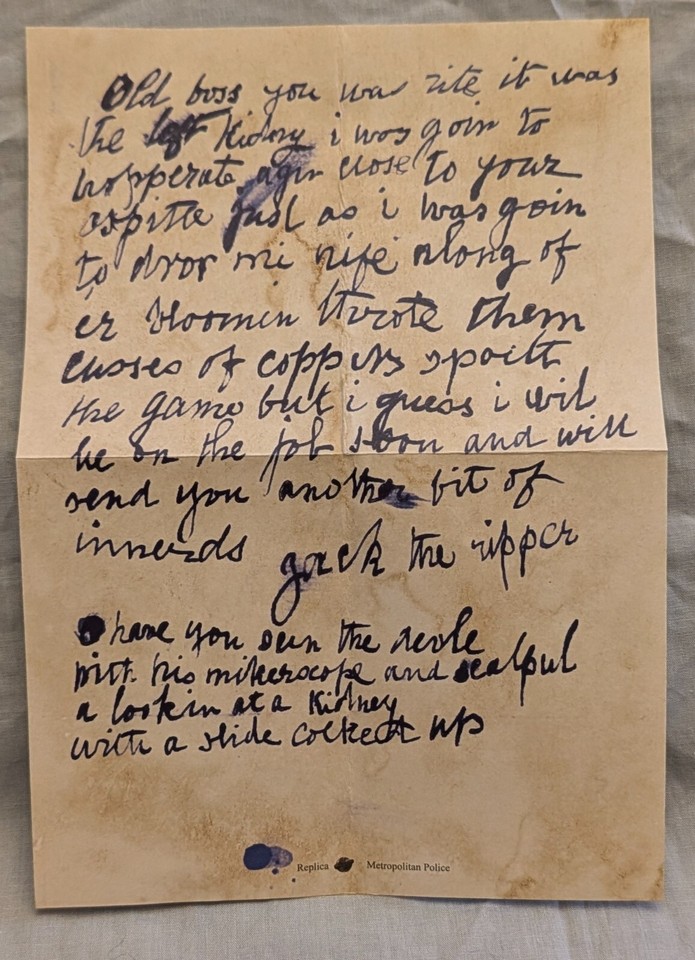 Old boss you was rite it was
the left kidny i was goin to
hopperate agin close to your
ospitle just as i was goin
to dror mi nife along of
er bloomin throte them
cusses of coppers spoilt
the game but i guess i wil
be on the job soon and will
send you another bit of
innerds Jack the ripper
O have you seen the devle
with his mikerscope and scalpul
a lookin at a Kidney
with a slide cocked up
Replica Metropolitan Police